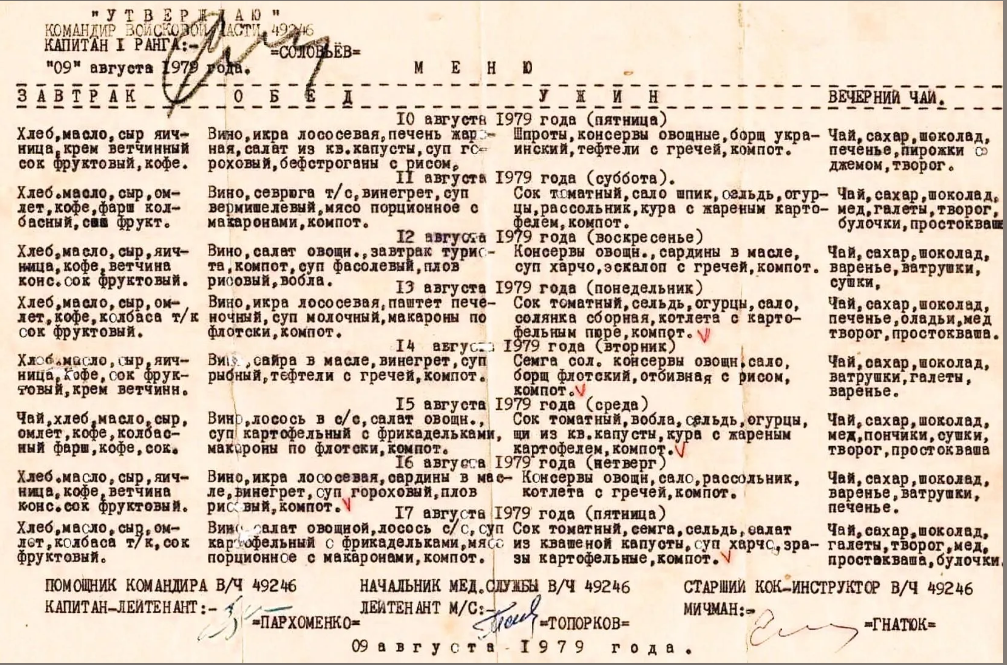 "УТВЕРЖДАЮ"
КОМАНДИР ВОЙСКОВОЙ ЧАСТИ 49246
КАПИТАН I РАНГА:- =СОЛОВЬЁВ=
"09" августа 1979 года. МЕНЮ
ЗАВТРАК ОБЕД УЖИН ВЕЧЕРНИЙ ЧАЙ.
10 августа 1979 года (пятница)
Хлеб,масло,сыр яич- Вино,икра лососевая,печень жаре- Шпроты,консервы овощные,борщ укра- Чай,сахар,шоколад,
ница,крем ветчинный ная,салат из кв.капусты,суп го- инский,тефтели с гречей,компот. печенье,пирожки со
сок фруктовый,кофе. роховый,бефстроганы с рисом, джемом,творог.
11 августа 1979 года (суббота).
Хлеб,масло,сыр,ом- Вино,севрюга т/с,винегрет,суп Сок томатный,сало шпик,сельдь,огур- Чай,сахар,шоколад,
лет,кофе,фарш кол- вермишелевый,мясо порционное с цы,рассольник,кура с жареным карто- мед,галеты,творог,
басный,сок фрукт. макаронами,компот. фелем,компот. булочки,простокваша
12 августа 1979 года (воскресенье)
Хлеб,масло,сыр,яич- Вино,салат овощн.,завтрак турис- Консервы овощн.,сардины в масле, Чай,сахар,шоколад,
ница,кофе,ветчина та,компот,суп фасолевый,плов суп харчо,эскалоп с гречей,компот. варенье,ватрушки,
конс.сок фруктовый. рисовый,вобла. сушки,
13 августа 1979 года (понедельник)
Хлеб,масло,сыр,ом- Вино,икра лососевая,паштет пече- Сок томатный,сельдь,огурцы,сало, Чай,сахар,шоколад,
лет,кофе,колбаса т/к ночный,суп молочный,макароны по солянка сборная,котлета с карто- печенье,оладьи,мед
сок фруктовый. флотски,компот. фельным пюре,компот. творог,простокваша.
14 августа 1979 года (вторник)
Хлеб,масло,сыр,яич- Вино,сайра в масле,винегрет,суп Семга сол. консервы овощн,сало, Чай,сахар,шоколад,
ница,кофе,сок фрук- рыбный,тефтели с гречей,компот. борщ флотский,отбивная с рисом, ватрушки,галеты,
товый,крем ветчинн. компот. варенье.
15 августа 1979 года (среда)
Чай,хлеб,масло,сыр, Вино,лосось в с/с,салат овощн., Сок томатный,вобла,сельдь,огурцы, Чай,сахар,шоколад,
омлет,кофе,колбас- суп картофельный с фрикадельками, щи из кв.капусты,кура с жареным мед,пончики,сушки,
ный фарш,кофе,сок. макароны по флотски,компот. картофелем,компот. творог,простокваша
16 августа 1979 года (четверг)
Хлеб,масло,сыр,яич- Вино,икра лососевая,сардины в мас- Консервы овощн,сало,рассольник, Чай,сахар,шоколад,
ница,кофе,ветчина ле,винегрет,суп гороховый,плов котлета с гречей,компот. варенье,ватрушки,
конс.сок фруктовый. рисовый,компот. печенье.
17 августа 1979 года (пятница)
Хлеб,масло,сыр,ом- Вино,салат овощной,лосось с/с,суп Сок томатный,семга,сельдь,салат Чай,сахар,шоколад,
лет,колбаса т/к,сок картофельный с фрикадельками,мясо из квашеной капусты,суп харчо,зра- галеты,творог,мед,
фруктовый. порционное с макаронами,компот. зы картофельные,компот. простокваша,булочки.
ПОМОШНИК КОМАНДИРА В/Ч 49246 НАЧАЛЬНИК МЕД.СЛУЖБЫ В/Ч 49246 СТАРШИЙ КОК-ИНСТРУКТОР В/Ч 49246
КАПИТАН-ЛЕЙТЕНАНТ:- =ПАРХОМЕНКО= ЛЕЙТЕНАНТ М/С:- =ТОПОРКОВ= МИЧМАН:- =ГНАТЮК=
09 августа 1979 года.